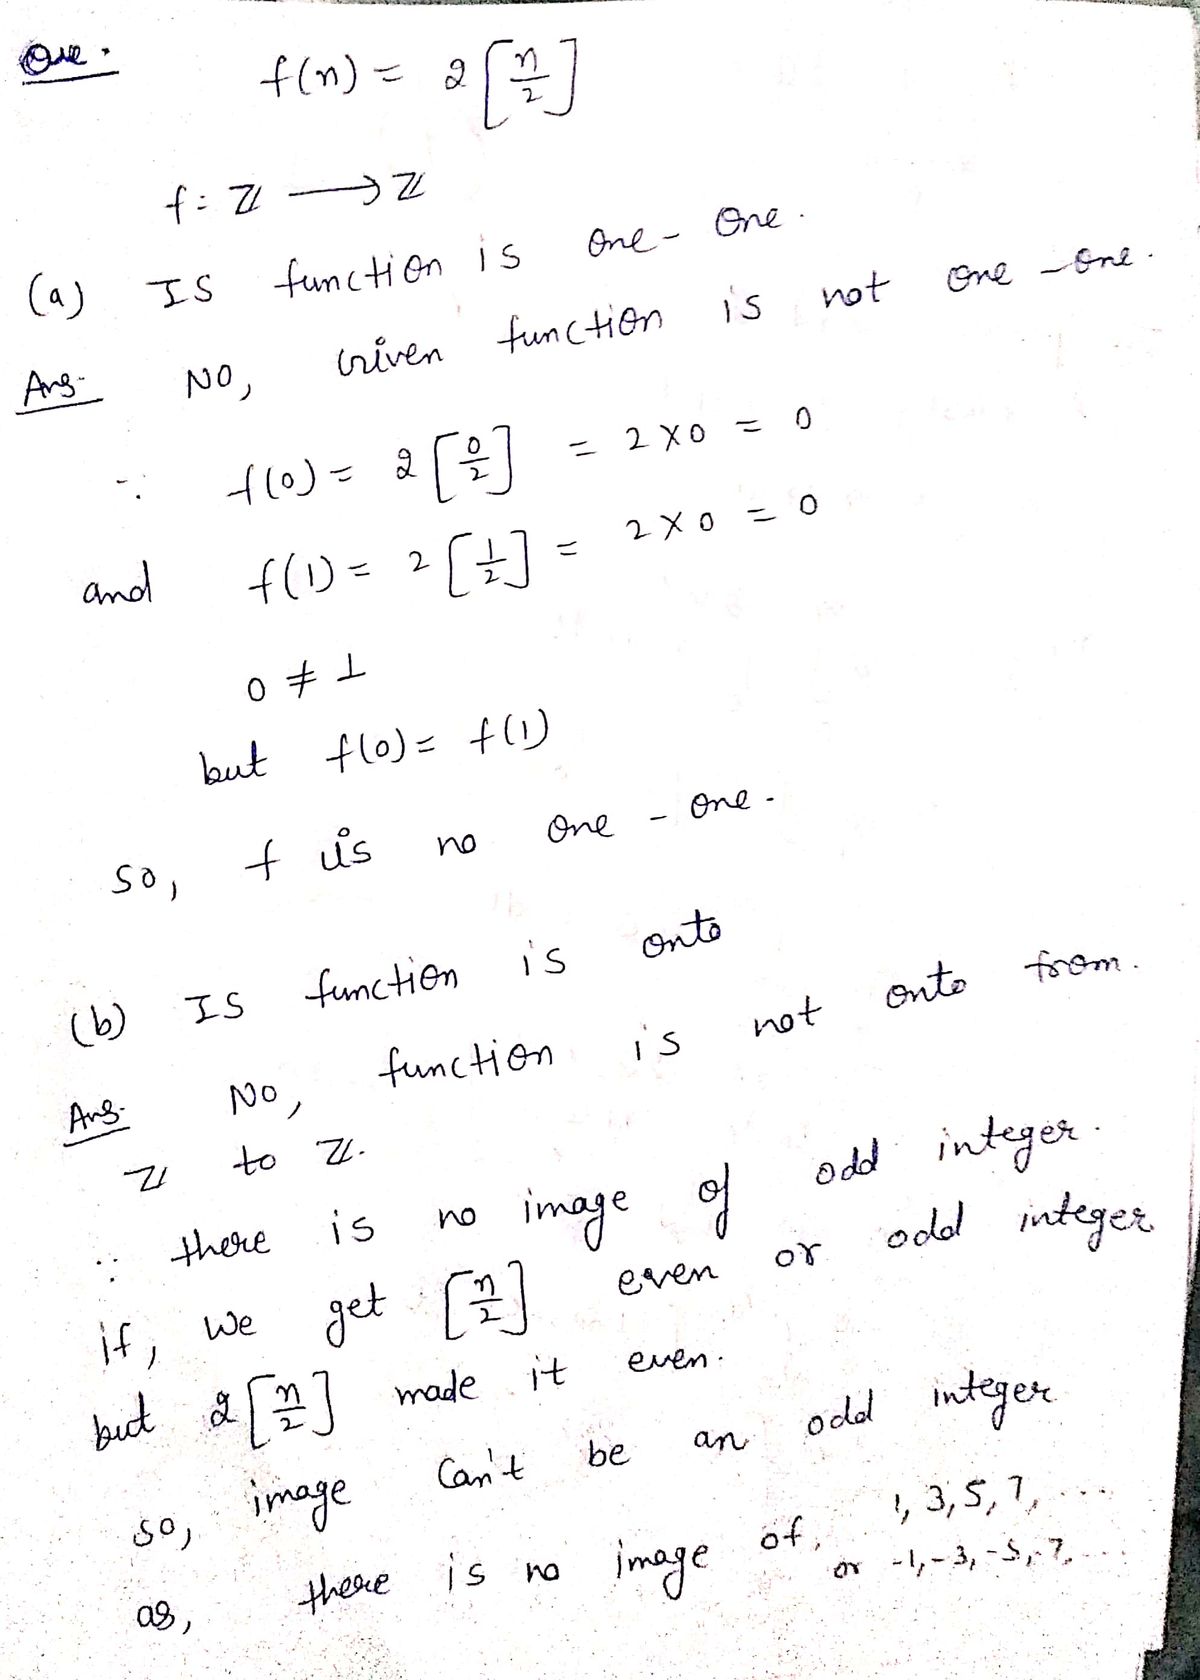 Que.
f(n) = 2[n/2]
f: ℤ → ℤ
(a) IS function is One - One.
Ans. NO, Given function is not One - One.
∵ f(0) = 2[0/2] = 2 × 0 = 0
and f(1) = 2[1/2] = 2 × 0 = 0
0 ≠ 1
but f(0) = f(1)
so, f is no One - One.
(b) IS function is onto
Ans. NO, function is not onto from.
ℤ to ℤ.
∵ there is no image of odd integer.
if, we get [n/2] even or odd integer
but 2[n/2] made it even.
so, image Can't be an odd integer
as, there is no image of, 1, 3, 5, 7, ...
or -1, -3, -5, -7, ...